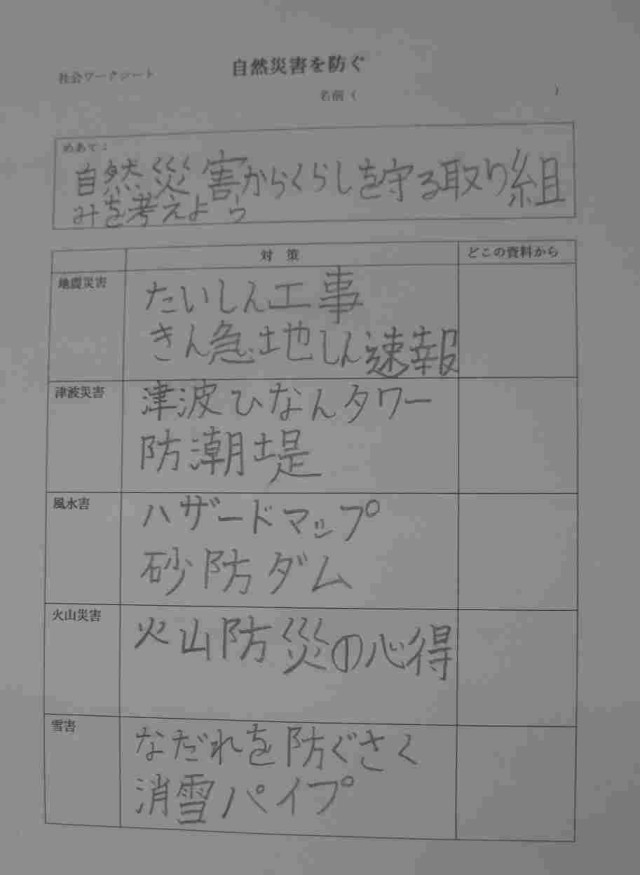 社会ワークシート
自然災害を防ぐ
名前（　　　）
めあて：
自然災害からくらしを守る取り組
みを考えよう
対策
どこの資料から
地震災害
たいしん工事
きん急地しん速報
津波災害
津波ひなんタワー
防潮堤
風水害
ハザードマップ
砂防ダム
火山災害
火山防災の心得
雪害
なだれを防ぐさく
消雪パイプ